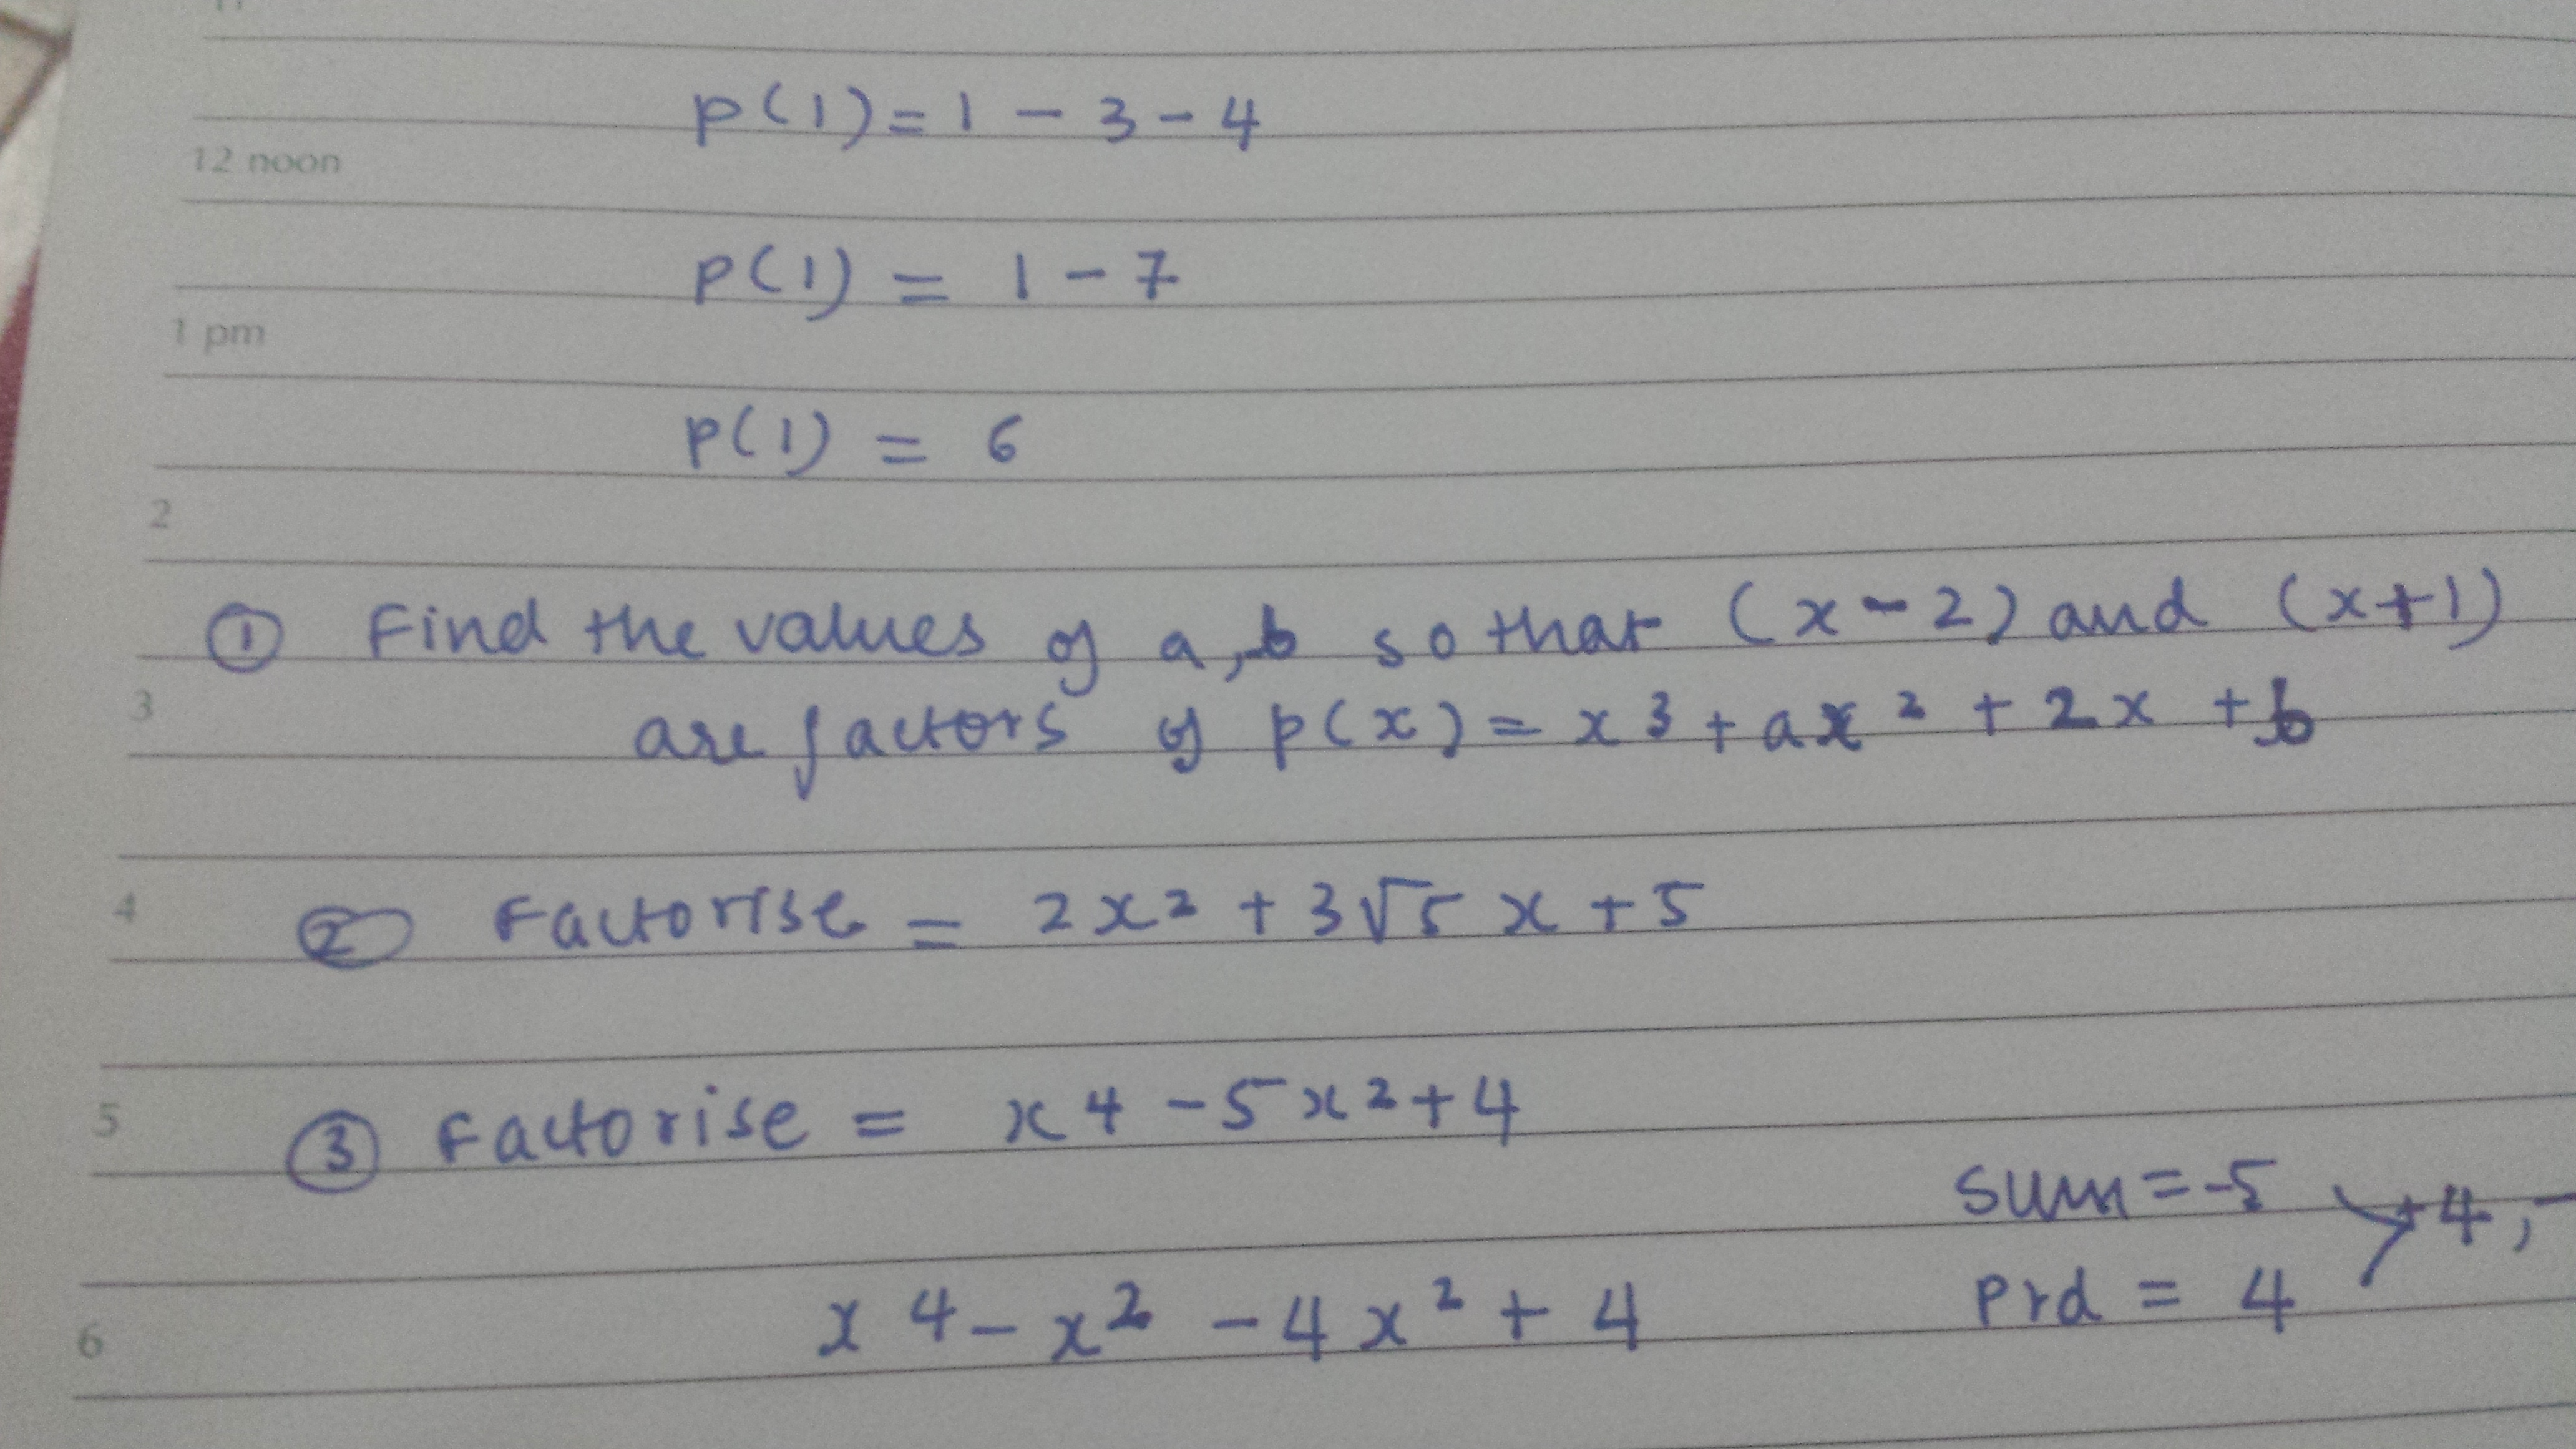 p(1) = 1 - 3 - 4
12 noon
p(1) = 1 - 7
1 pm
p(1) = 6
2
① Find the values of a, b so that (x - 2) and (x + 1)
3
are factors of p(x) = x³ + ax² + 2x + b
4
② Factorise = 2x² + 3√5 x + 5
5
③ Factorise = x⁴ - 5x² + 4
sum = -5
+4, -
prd = 4
6
x⁴ - x² - 4x² + 4